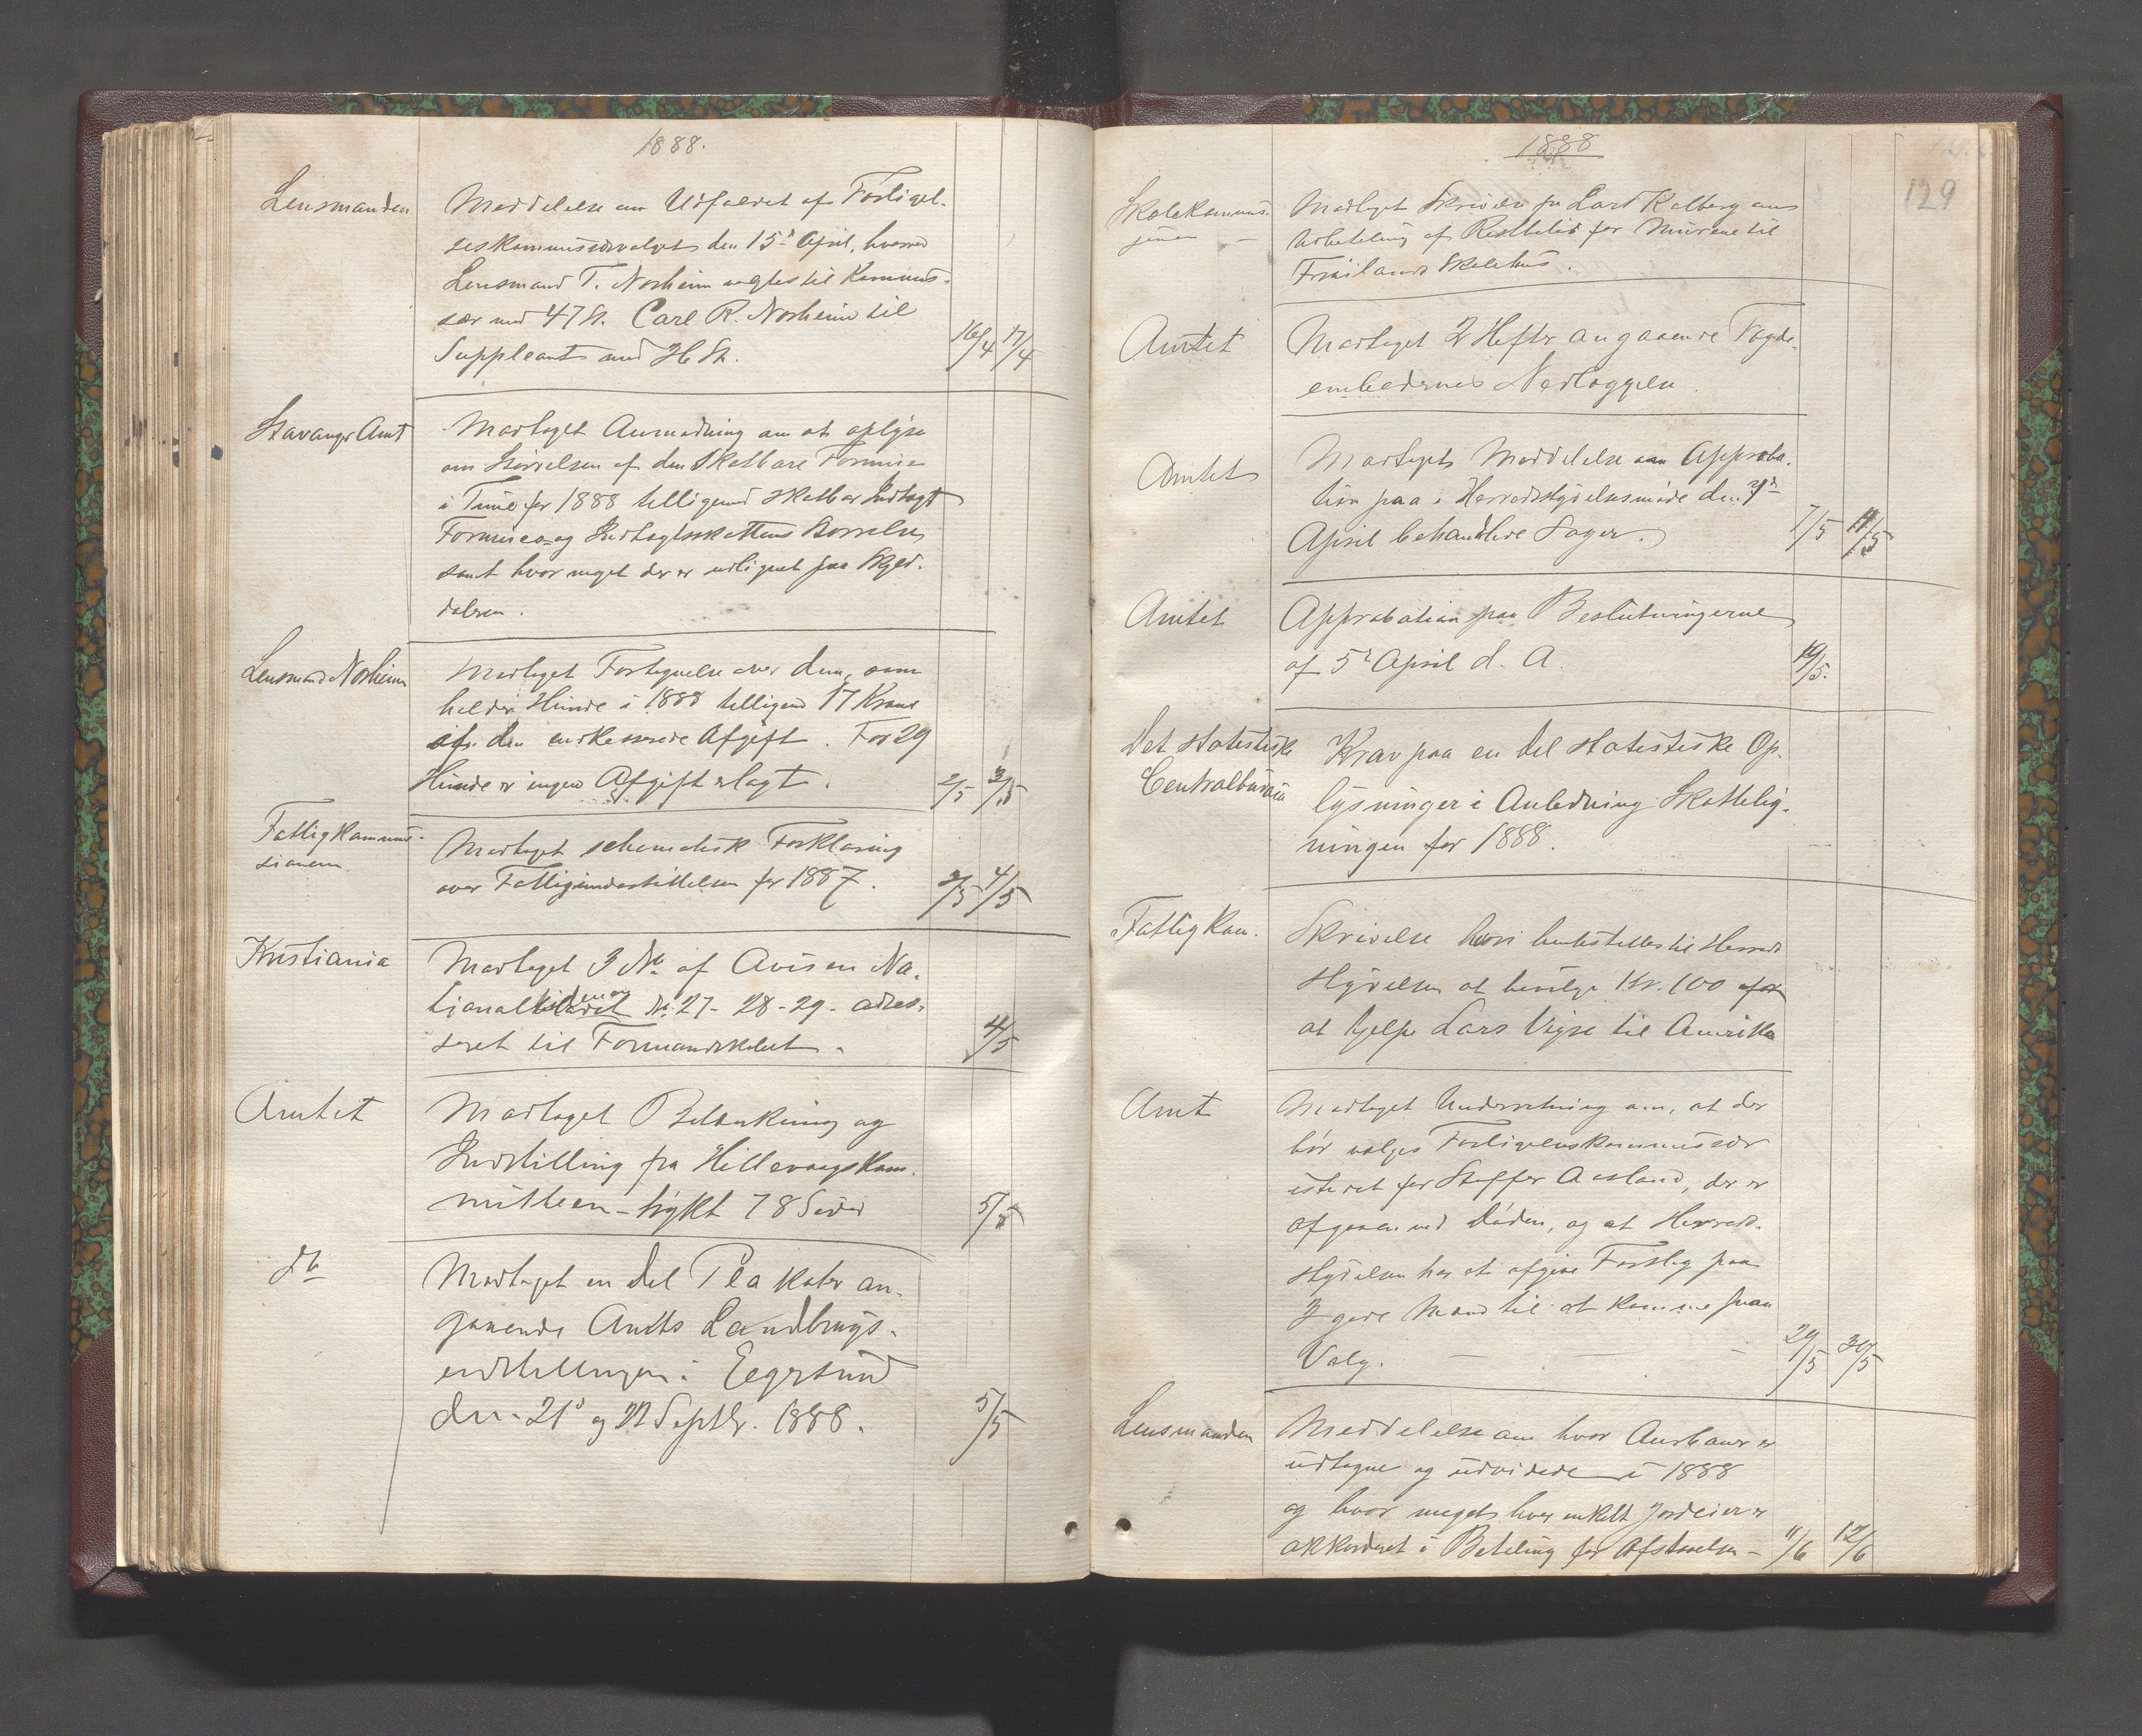 1888.
Lensmanden
Meddelelse om Udfaldet af Forligel-
seskommissærvalget den 15de April, hvorved
Lensmand T. Norheim valgtes til Kommis-
sær med 47 St. Carl R. Norheim til
Suppleant med St.
16/4 17/4
Stavanger Amt
Modtaget Anmodning om at oplyse
om Størrelsen af den Skatbare Formue
i Time for 1888 tilligemed skatbar Indtægt
Formues- og Indtægtsskattens Størrelse
samt hvor meget der er udlignet paa Skyld-
daleren.
Lensmand Norheim
Modtaget Fortegnelse over dem, som
holder Hunde i 1888 tilligemed 17 Kroner
af den Afgift. For 29
Hunde er ingen Afgift erlagt.
2/5 3/5
Fattigkommis-
sionen
Modtaget schematisk Forklaring
over Fattigunderstøttelsen for 1887.
2/5 4/5
Kristiania
Modtaget 3 No af Avisen Na-
tional No 27- 28- 29- adres-
seret til Formandskabet.
4/5
Amtet
Modtaget Betænkning og
Indstilling fra Hillevaagskom-
mitteen - trykt 78 Sider
5/5
do
Modtaget en del Plakater an-
gaaende Amts Landbrugs-
udstillingen i Egersund
den 21de og 22 Septbr. 1888.
5/5
1888
129
Skolekommis-
sjonen -
Modtaget Skrivelse fra Lars Kalberg om
Udbetaling af Resttilsk for Murene til
Frøiland Skolehus.
Amtet
Modtaget 2 Hefter angaaende Fogde-
embedernes Nedlæggelse.
Amtet
Modtaget Meddelelse om Approba-
tion paa i Herredsstyrelsesmøde den 7de
April behandlede Sager.
7/5 11/5
Amtet
Approbation paa Beslutningerne
af 5te April d. A.
19/5.
Det statistiske
Centralbureau
Krav paa en del statistiske Op-
lysninger i Anledning Skattelig-
ningen for 1888.
Fattigkom.
Skrivelse hvori henstilles til Herreds
styrelsen at bevilge Kr. 100 for
at hjelpe Lars Vigre til Amerika
Amt
Modtaget Underretning om, at der
bør vælges Forligelseskommissær
istedet for Steffen Aasland, der er
afgaaet ved Døden, og at Herreds-
styrelsen har at afgive Forslag paa
3 gode Mænd til at komme paa
Valg. — — -
29/5 30/5
Lensmanden
Meddelelse om hvor Gruber er
udtagne og udvidede i 1888
og hvor meget hver enkelt Jordeier er
akkorderet i Betaling for Afstaaelse -
11/6 12/6